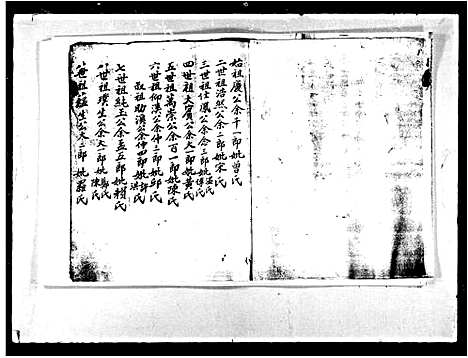 始祖慶公余千一郎妣曾氏
二世祖浩然公余二郎妣宋氏
三世祖仕鳳公余念三郎妣温氏 偉氏
四世祖大賓公余大一郎妣黃氏
五世祖萬崇公余百一郎妣陳氏
六世祖仰溪公余仲三郎妣邱氏
叔祖助溪公余仲四郎妣許氏 洪氏
七世祖純玉公余孟五郎妣賴氏
八世祖璞生公余大一郎妣鄭氏 陳氏
世祖蘊生公大二郎妣羅氏